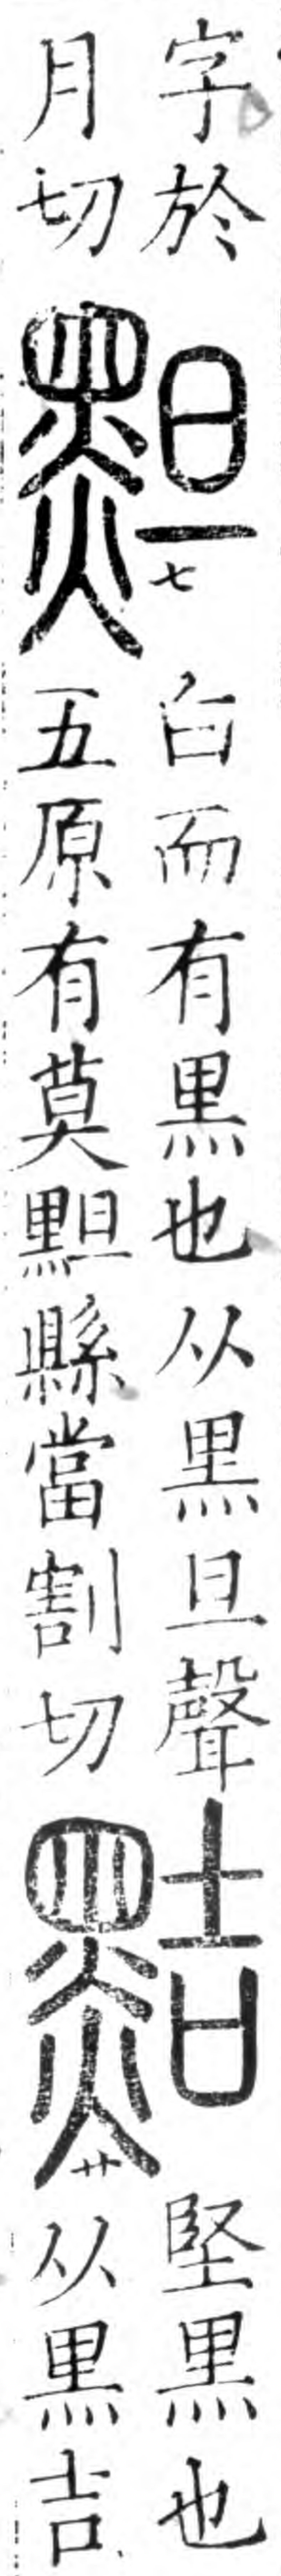 字於
月切
䵣
七
白而有黑也从黑旦聲
五原有莫䵣縣當割切
黠
卄
堅黑也
从黑吉